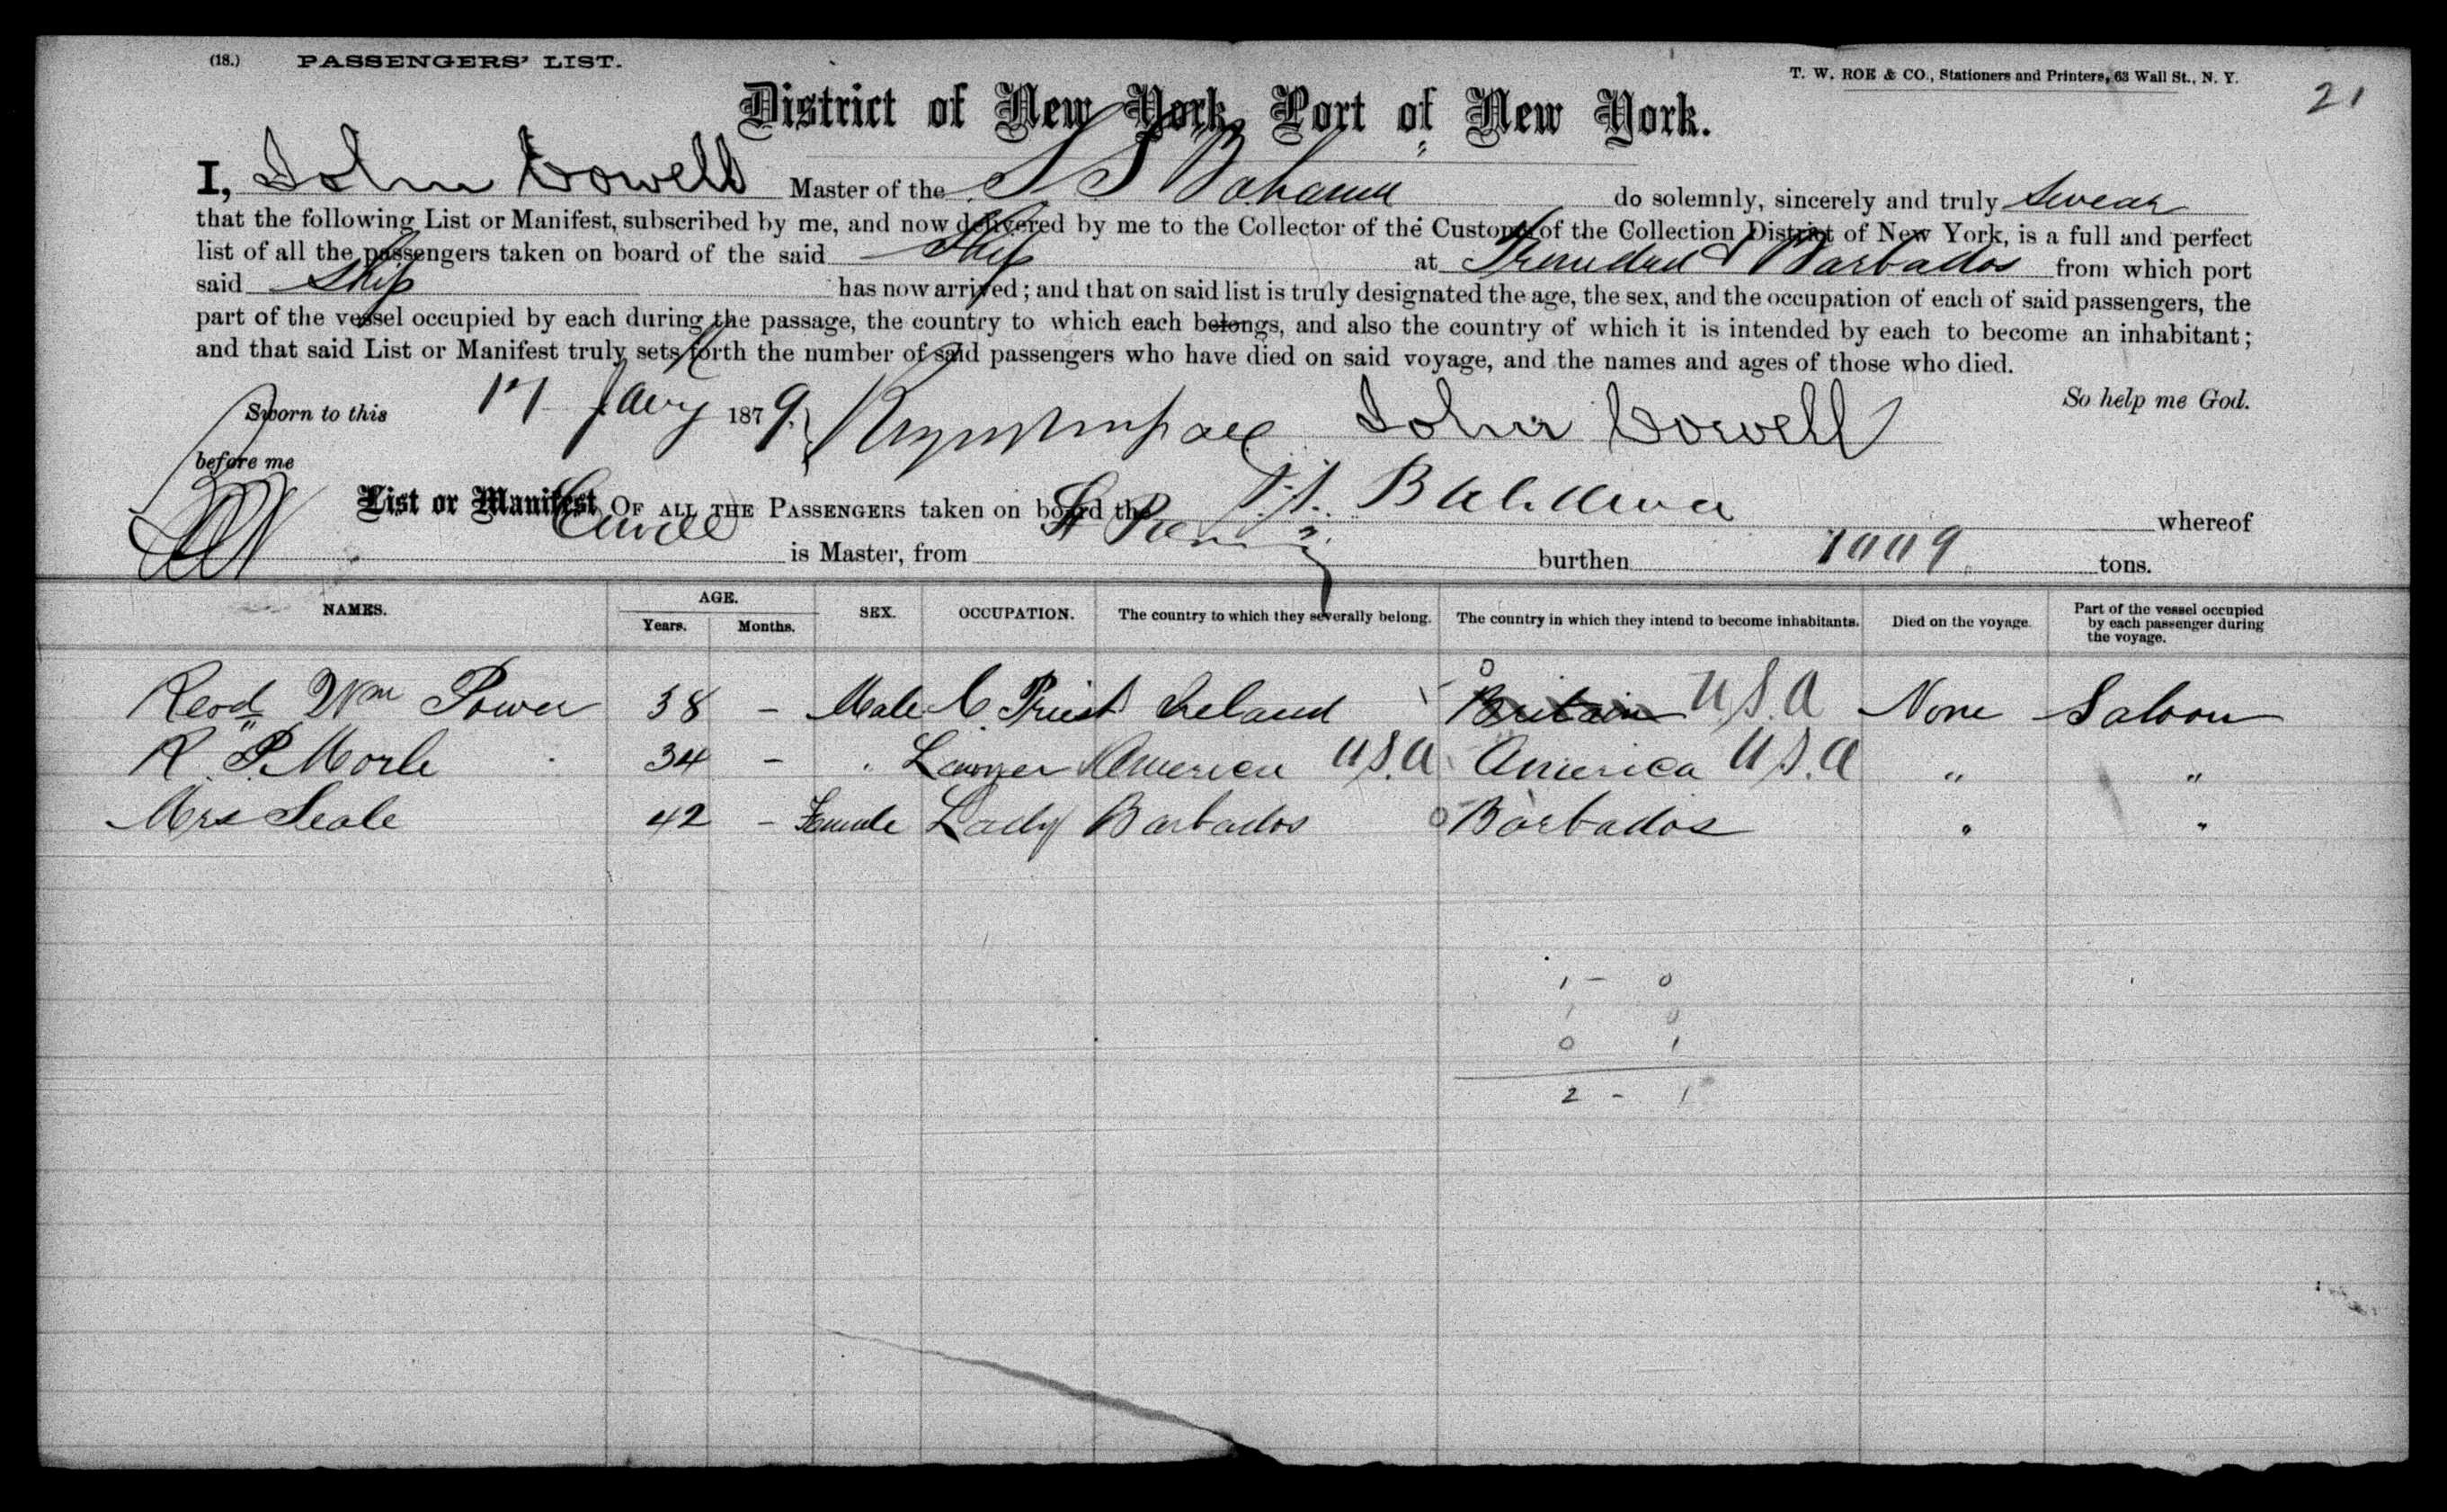 (18.) PASSENGERS' LIST.
T. W. ROE & CO., Stationers and Printers, 63 Wall St., N. Y.
21
District of New York, Port of New York.
I, John Cowell Master of the S S Bahama do solemnly, sincerely and truly Swear
that the following List or Manifest, subscribed by me, and now delivered by me to the Collector of the Customs of the Collection District of New York, is a full and perfect
list of all the passengers taken on board of the said Ship at Trinidad & Barbados from which port
said Ship has now arrived; and that on said list is truly designated the age, the sex, and the occupation of each of said passengers, the
part of the vessel occupied by each during the passage, the country to which each belongs, and also the country of which it is intended by each to become an inhabitant;
and that said List or Manifest truly sets forth the number of said passengers who have died on said voyage, and the names and ages of those who died.
So help me God.
Sworn to this 17 Jany 1879 John Cowell
before me
List or Manifest OF ALL THE PASSENGERS taken on board the S.S. Bahama whereof
is Master, from burthen 1009 tons.
NAMES. AGE. SEX. OCCUPATION. The country to which they severally belong. The country in which they intend to become inhabitants. Died on the voyage. Part of the vessel occupied by each passenger during the voyage.
Years. Months.
Revd Wm Power 38 – Male C. Priest Ireland Britain U.S.A None Saloon
R. P. Morle 34 – " Lawyer America U.S.A America U.S.A " "
Mrs Seale 42 – Female Lady Barbados 0 Barbados " "
1 – 0
1 0
0 1
2 – 1